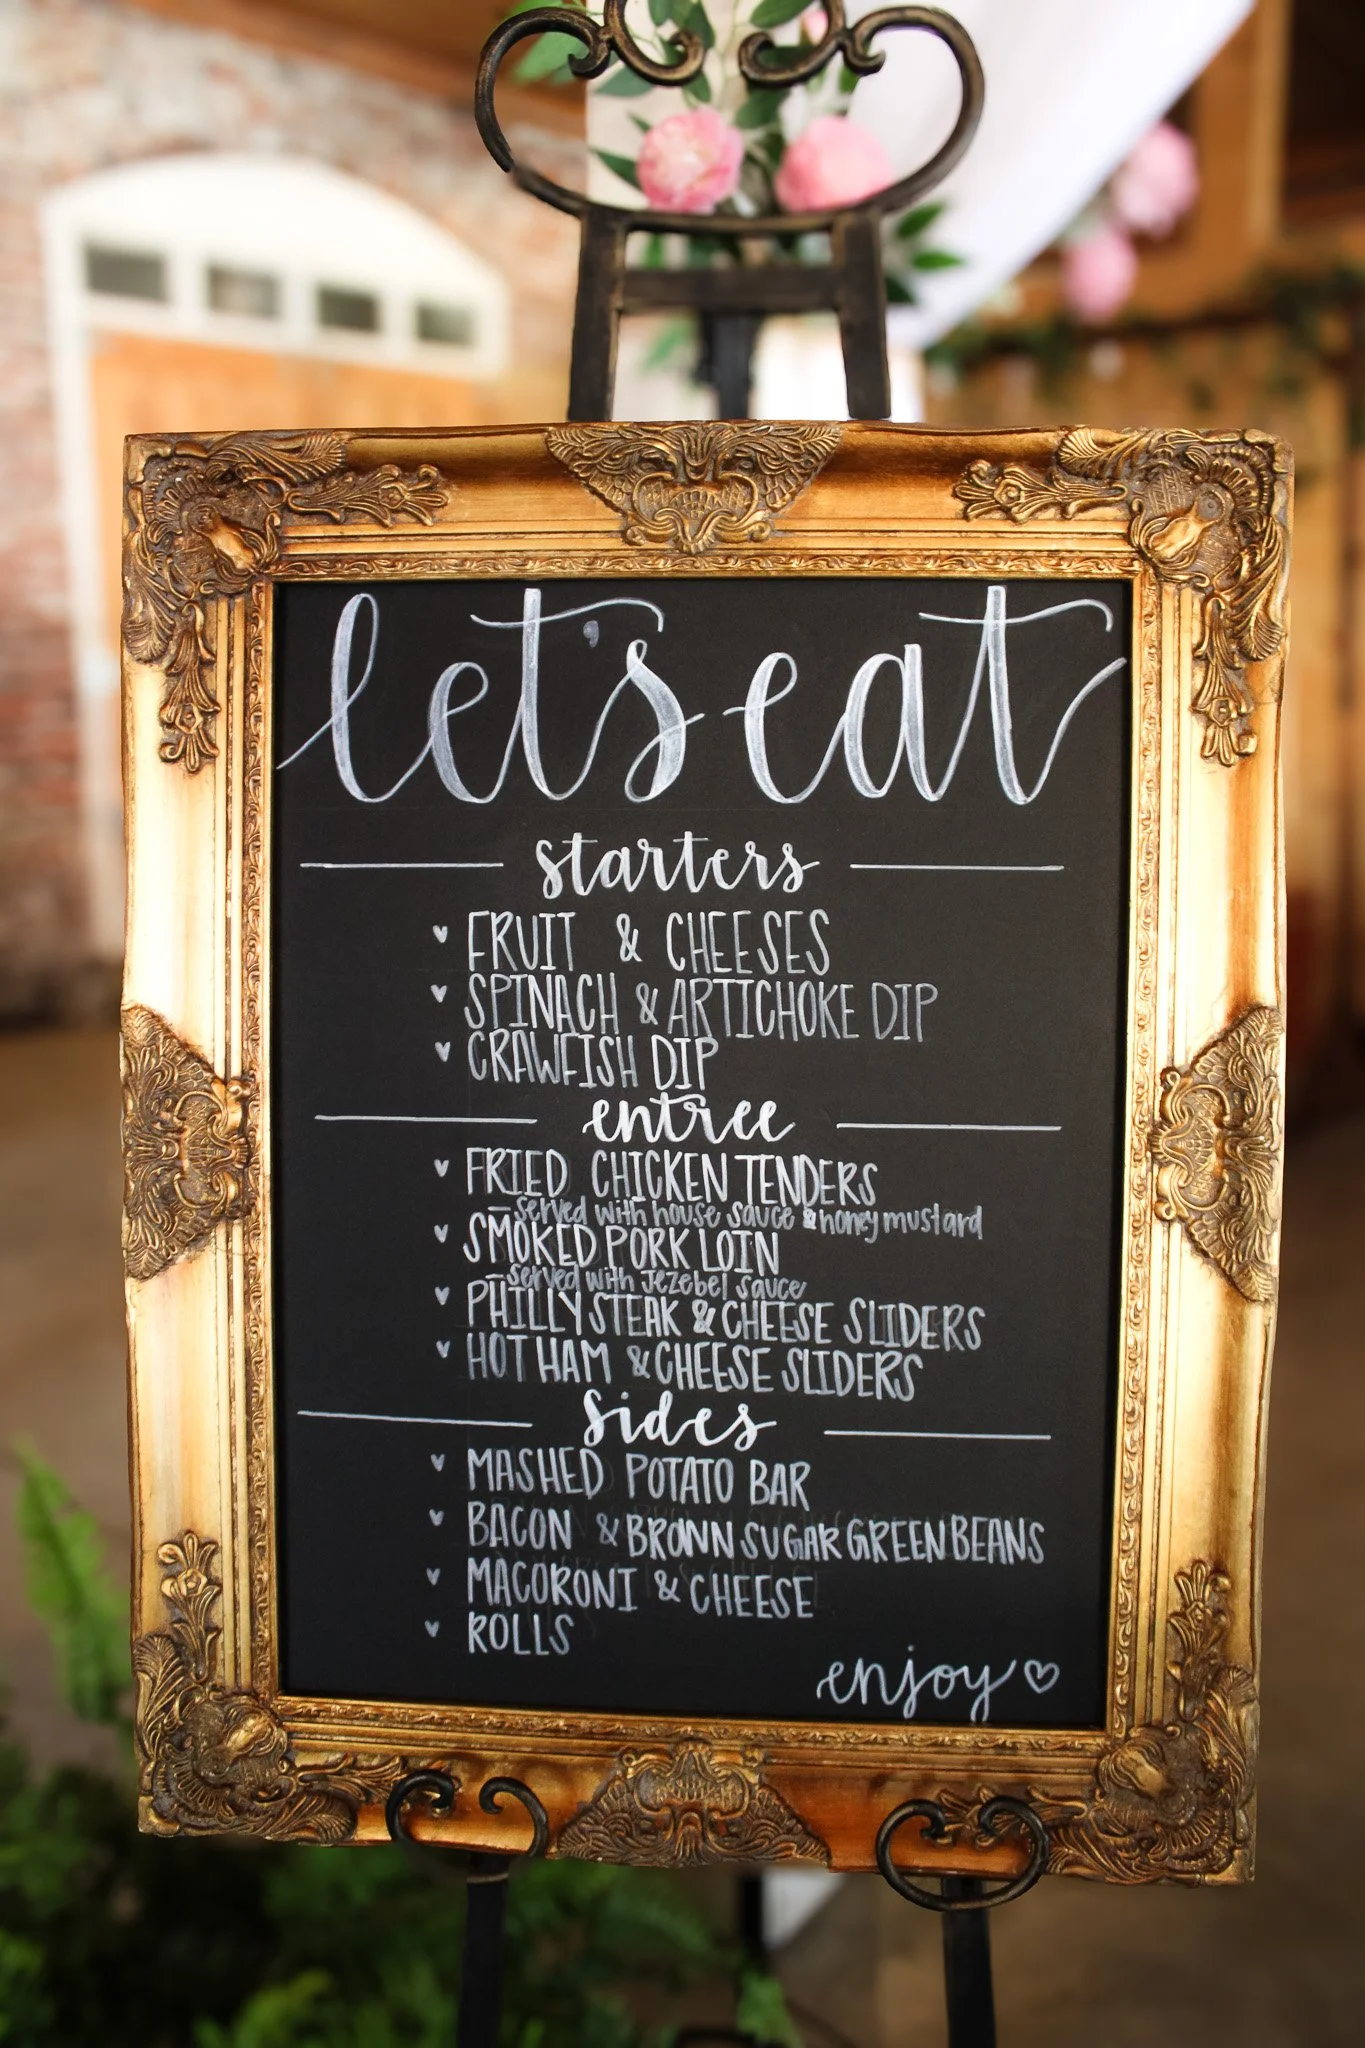 let's eat
starters
FRUIT & CHEESES
SPINACH & ARTICHOKE DIP
CRAWFISH DIP
entree
FRIED CHICKEN TENDERS
- served with house sauce & honey mustard
SMOKED PORK LOIN
- served with Jezebel sauce
PHILLY STEAK & CHEESE SLIDERS
HOT HAM & CHEESE SLIDERS
sides
MASHED POTATO BAR
BACON & BROWN SUGAR GREEN BEANS
MACORONI & CHEESE
ROLLS
enjoy ♡